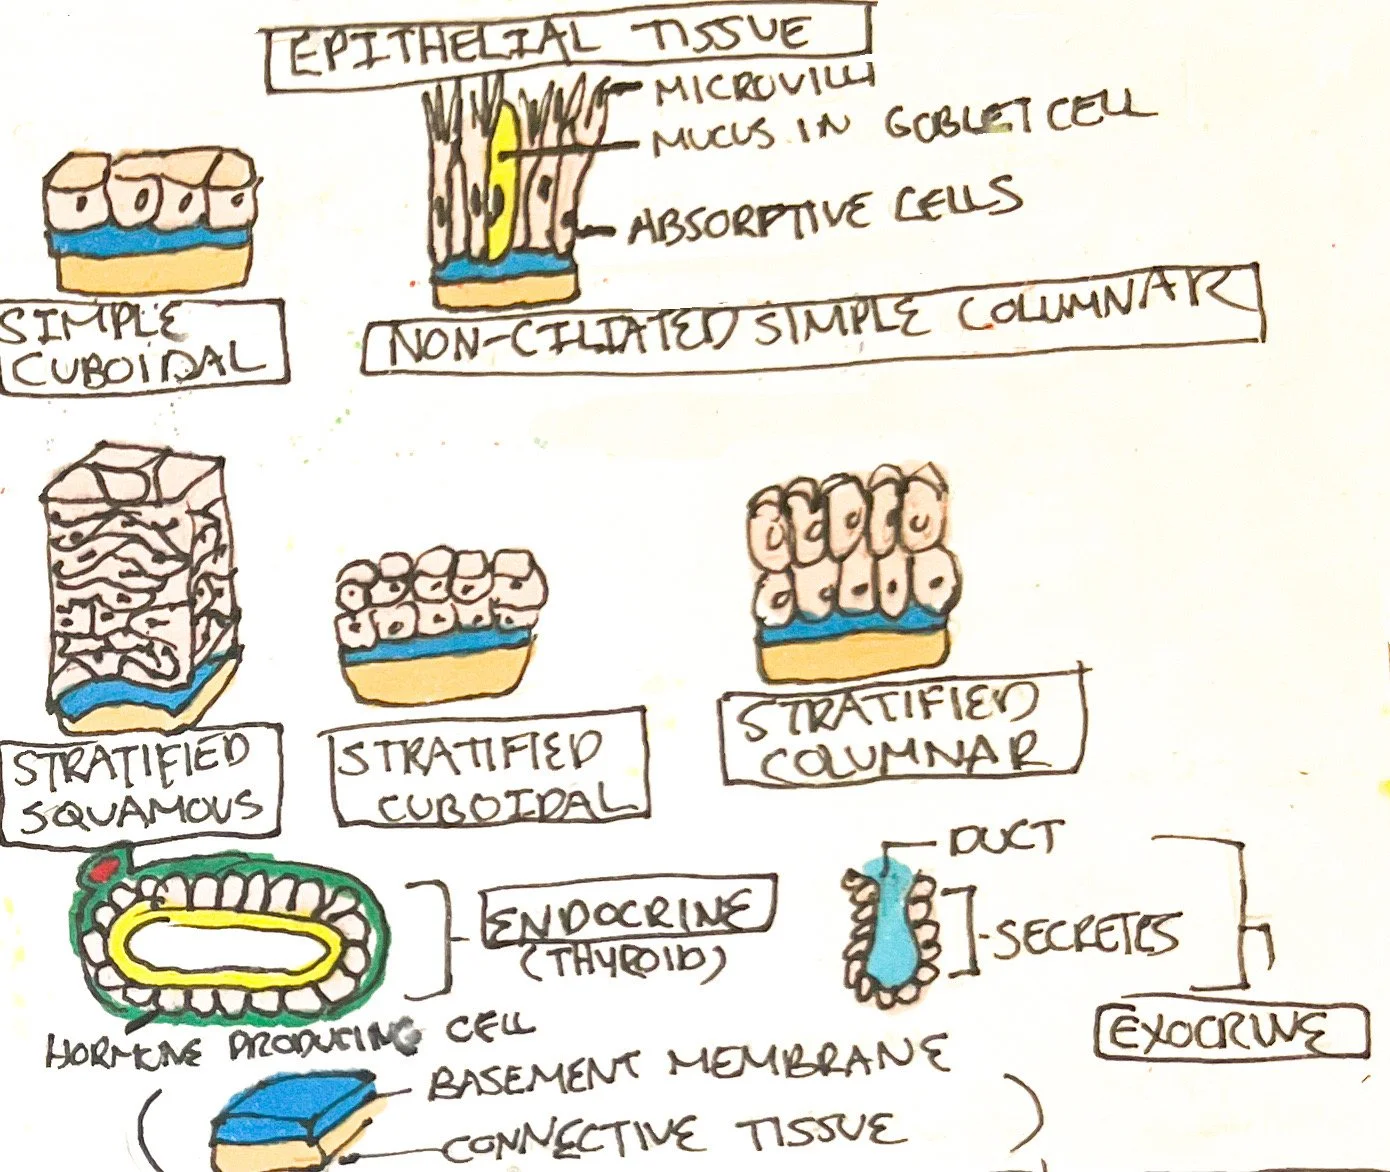 EPITHELIAL TISSUE
MICROVILLI
MUCUS IN GOBLET CELL
ABSORPTIVE CELLS
SIMPLE
CUBOIDAL
NON-CILIATED SIMPLE COLUMNAR
STRATIFIED
SQUAMOUS
STRATIFIED
CUBOIDAL
STRATIFIED
COLUMNAR
ENDOCRINE
(THYROID)
HORMONE PRODUCING CELL
DUCT
SECRETES
EXOCRINE
(BASEMENT MEMBRANE
CONNECTIVE TISSUE)